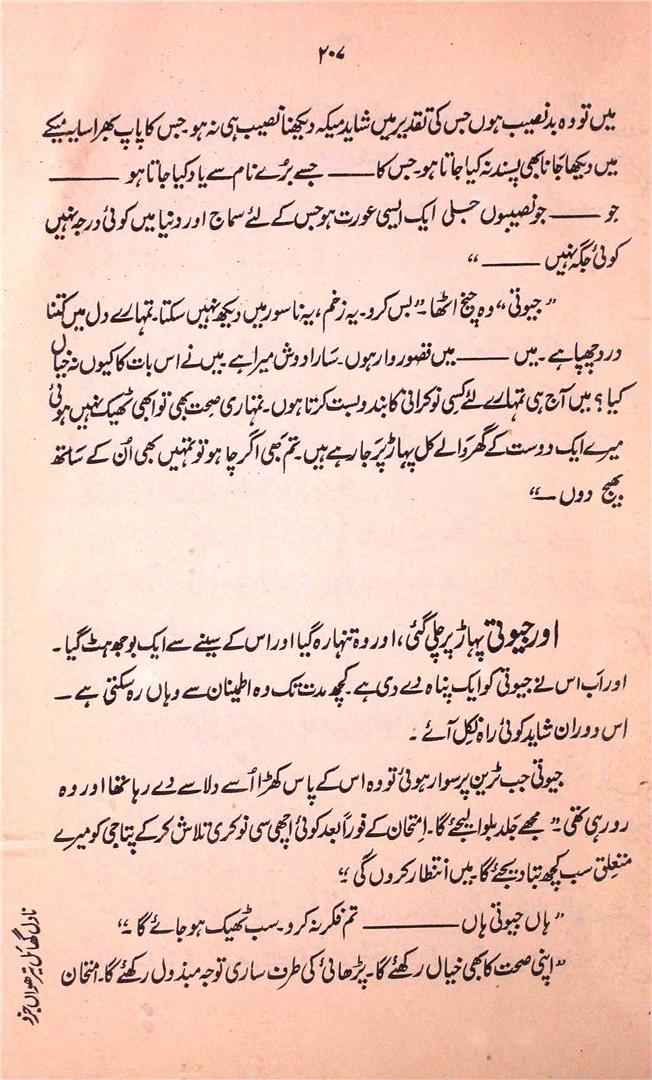 ۲۰۷
میں تو وہ بدنصیب ہوں جس کی تقدیر میں شاید میکہ دیکھنا نصیب ہی نہ ہو۔ جس کا پاپ بھرا سایہ میکے
میں دیکھا جانا بھی پسند نہ کیا جاتا ہو۔ جس کا —— جسے بُرے نام سے یاد کیا جاتا ہو ——
جو —— جو نصیبوں جلی ایک ایسی عورت ہو جس کے لئے سماج اور دنیا میں کوئی درجہ نہیں
کوئی جگہ نہیں —— “
” جیوتی “ وہ چیخ اٹھا۔ ” بس کرو۔ یہ زخم، یہ ناسور میں دیکھ نہیں سکتا۔ تمہارے دل میں کتنا
درد چھپا ہے۔ میں —— میں قصور وار ہوں۔ سارا دوش میرا ہے۔ میں نے اس بات کا کیوں نہ خیال
کیا؟ میں آج ہی تمہارے لئے کسی نوکرانی کا بندوبست کرتا ہوں۔ تمہاری صحت بھی تو ابھی ٹھیک نہیں ہوئی
میرے ایک دوست کے گھر والے کل پہاڑ پر جا رہے ہیں۔ تم بھی اگر چاہو تو تمہیں بھی اُن کے ساتھ
بھیج دوں —“
اور جیوتی پہاڑ پر چلی گئی، اور وہ تنہا رہ گیا اور اس کے سینے سے ایک بوجھ ہٹ گیا۔
اور اب اس نے جیوتی کو ایک پناہ دے دی ہے۔ کچھ مدت تک وہ اطمینان سے وہاں رہ سکتی ہے —
اس دوران شاید کوئی راہ نکل آئے۔
جیوتی جب ٹرین پر سوار ہوئی تو وہ اس کے پاس کھڑا اُسے دلاسے دے رہا تھا اور وہ
رو رہی تھی۔ ” مجھے جلد بلوا لیجئے گا۔ اِمتحان کے فوراً بعد کوئی اچھی سی نوکری تلاش کر کے پتا جی کو میرے
متعلق سب کچھ بتا دیجئے گا۔ میں انتظار کروں گی “
” ہاں جیوتی ہاں —— تم فکر نہ کرو۔ سب ٹھیک ہو جائے گا ۔“
” اپنی صحت کا بھی خیال رکھئے گا۔ پڑھائی کی طرف ساری توجہ مبذول رکھئے گا۔ امتحان
ناول گھائل تیرھواں جزو